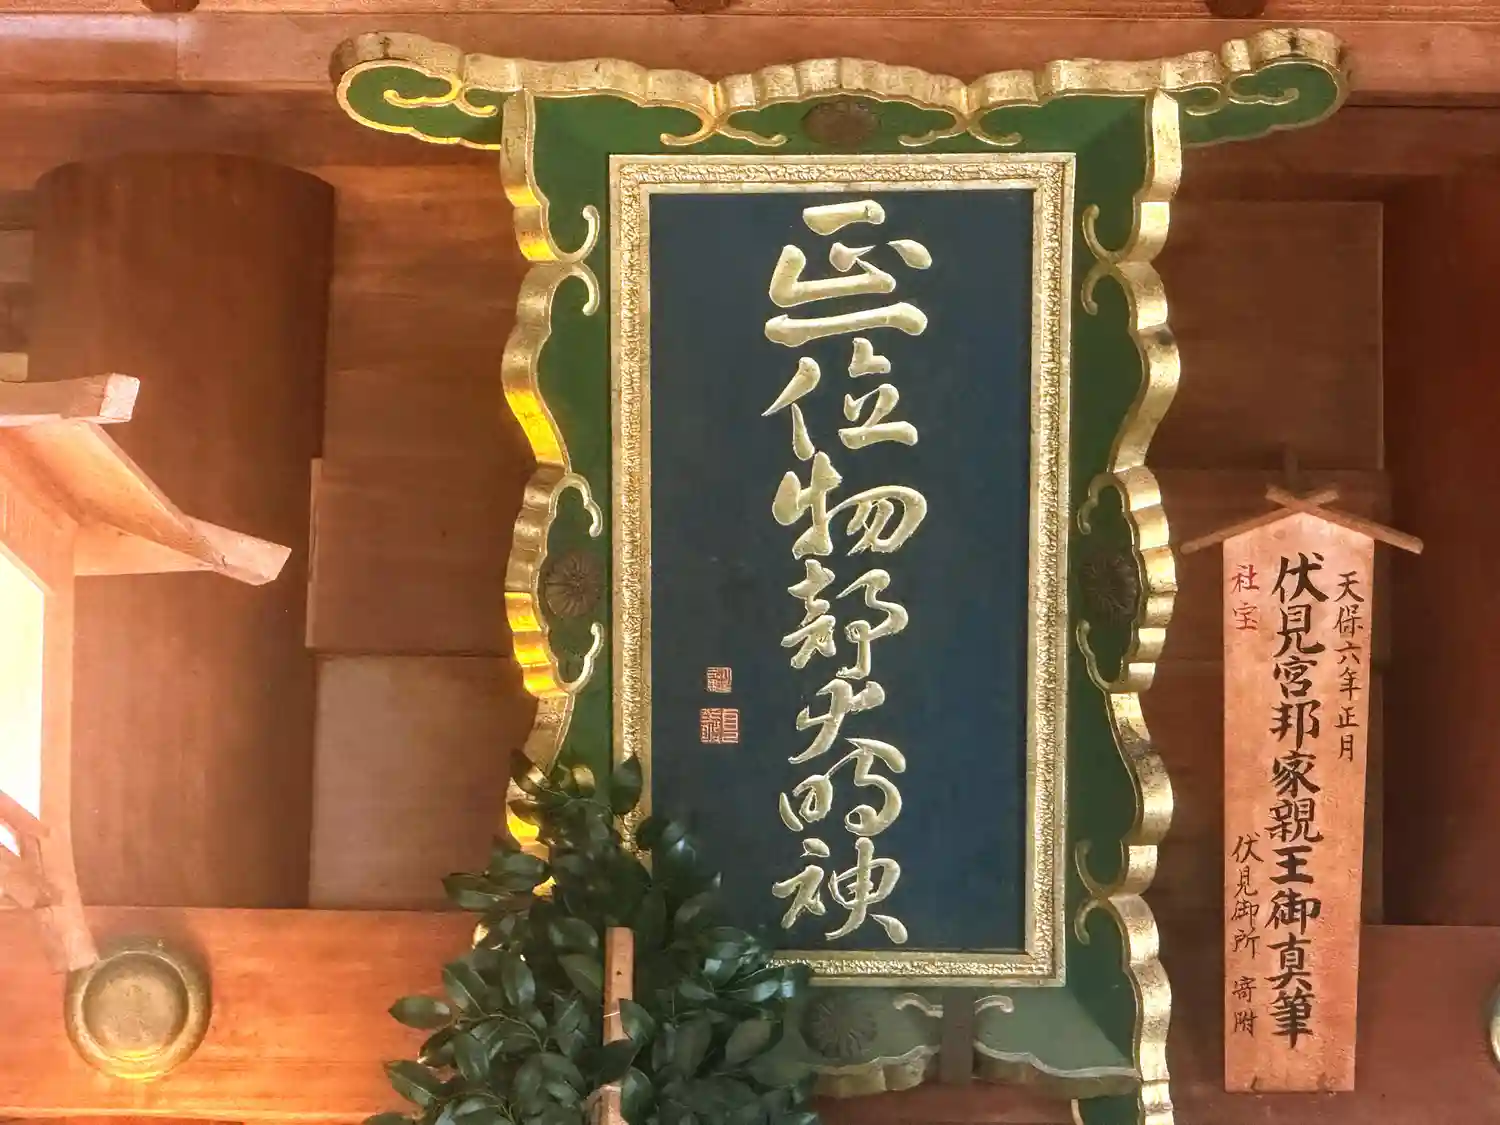 正一位物部大明神
天保六年正月
伏見宮邦家親王御真筆
社宝
伏見御所 寄附